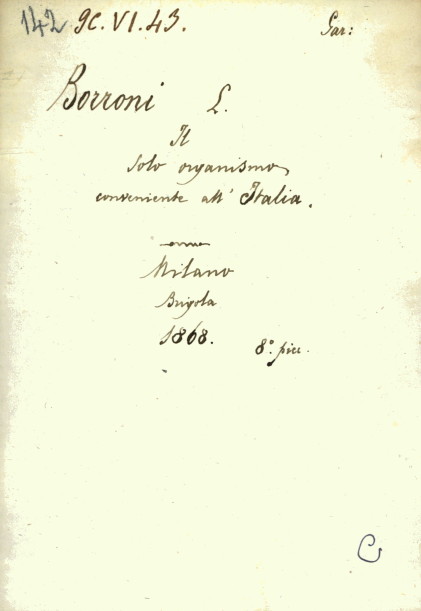 142 9C.VI.43. Gar:
Borroni L.
Il
solo organismo
conveniente all' Italia.
Milano
Brigola
1868. 8° picc.
C